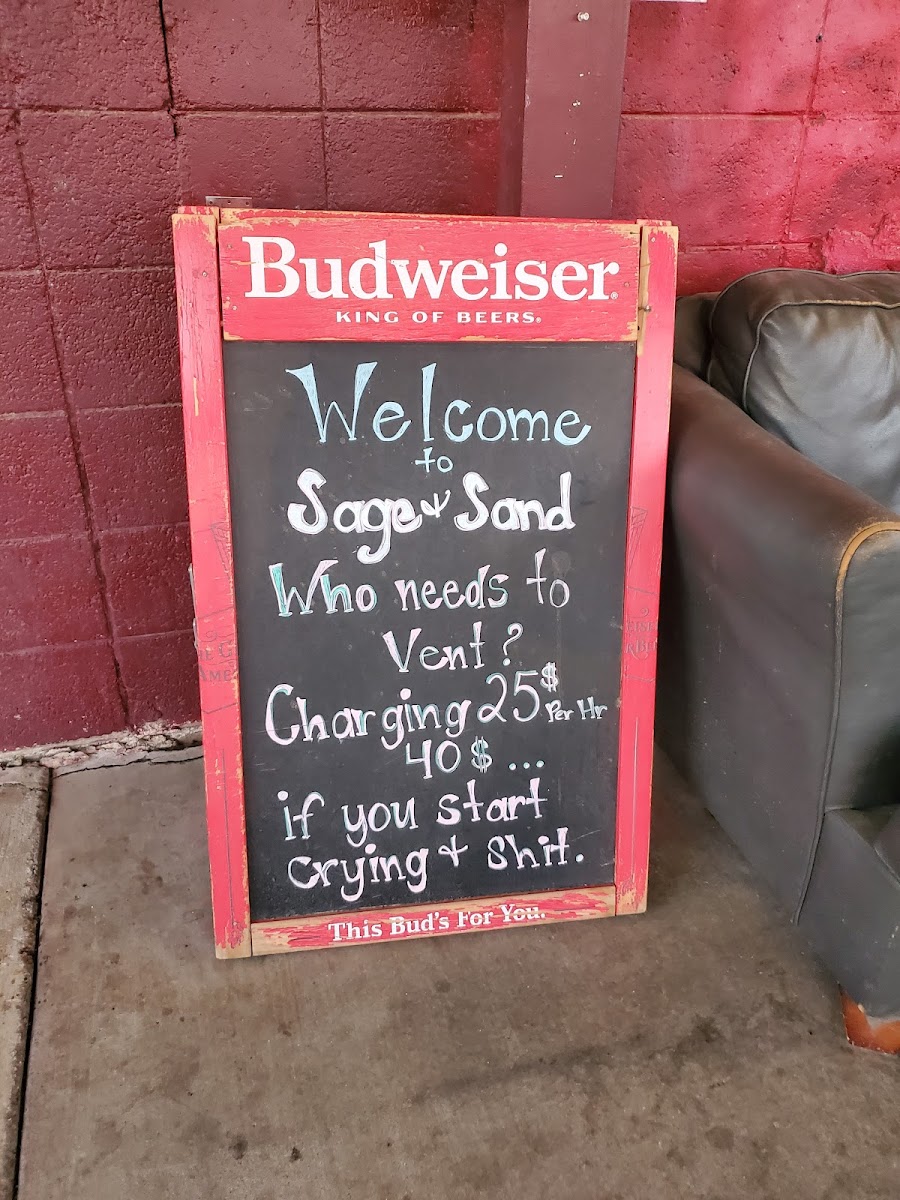 Budweiser
KING OF BEERS.
Welcome
to
Sage & Sand
Who needs to
Vent?
Charging 25$ Per Hr
40$ ...
if you start
crying + shit.
This Bud's For You.